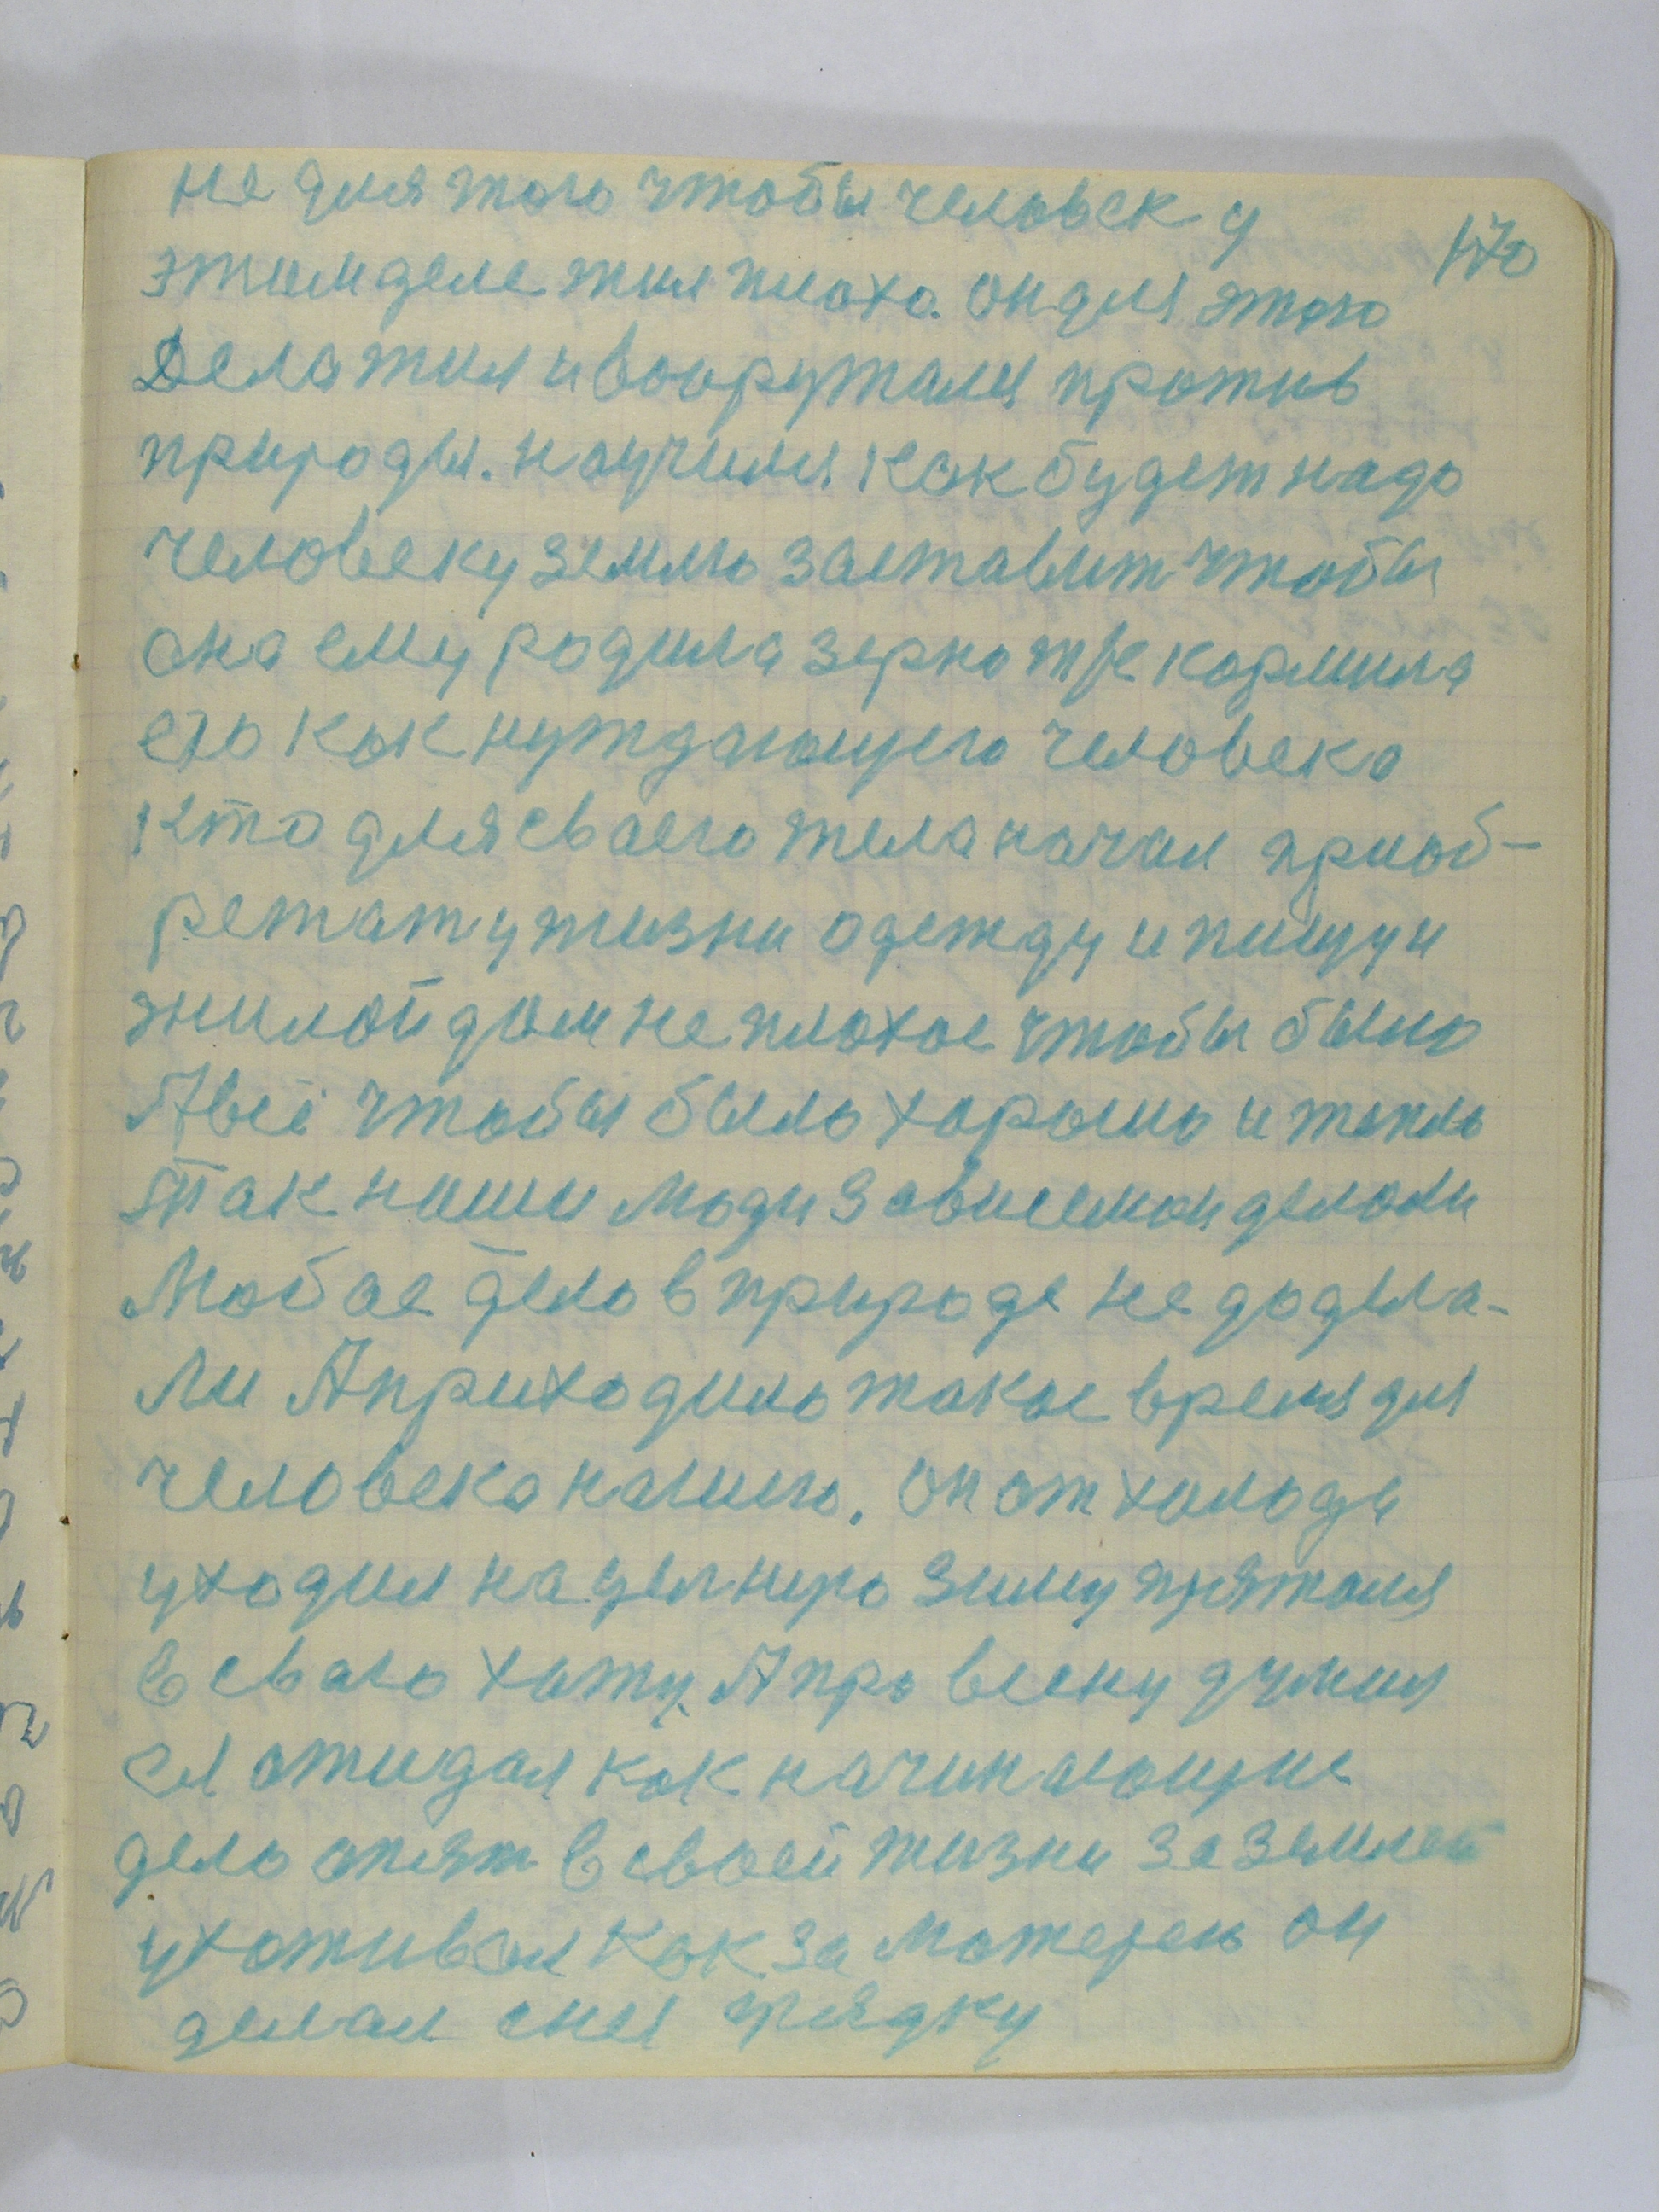 не для того чтобы человек у
170
этим деле жил плохо. он для этого
Дела жил и вооружался против
природы. научился как будет надо
человеку землю заставит чтобы
она ему родила зерно т/е кормила
его как нуждающего человека
Кто для сваего тела начал приоб-
ретат у жизни одежду и пищу и
жилой дом не плохое чтобы было
А всё чтобы было харошо и тепло
Так наши люди зависемои делали
Любое дело в природе не додела-
ли А приходило такое время для
человека нашего. он от холода
уходил на целную зиму прятался
в сваю хату. А про весну думал
ожидал как начинающие
дело опят в своей жизни за землей
ухаживал как за матерею он
делал с ней грядку